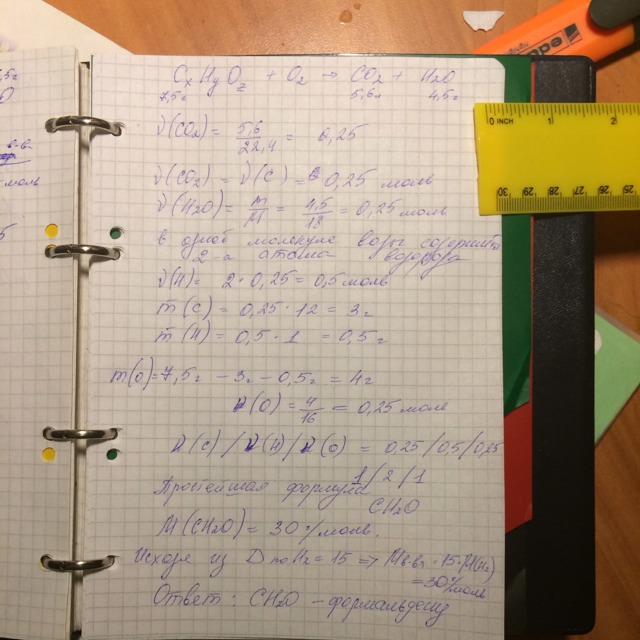 CxHyOz + O2 → CO2 + H2O
7,5г 5,6л 4,5г
ν(CO2) = 5,6/22,4 = 0,25
ν(CO2) = ν(C) = 0,25 моль
ν(H2O) = m/M = 4,5/18 = 0,25 моль
в одной молекуле воды содержится
2-а атома водорода
ν(H) = 2·0,25 = 0,5 моль
m(C) = 0,25·12 = 3г
m(H) = 0,5·1 = 0,5г
m(O) = 7,5г - 3г - 0,5г = 4г
ν(O) = 4/16 = 0,25 моль
ν(C)/ν(H)/ν(O) = 0,25/0,5/0,25
1/2/1
Простейшая формула
CH2O
M(CH2O) = 30 г/моль.
Исходя из D по H2 = 15 => Mв-ва·15·M(H2)
=30г/моль
Ответ: CH2O - формальдегид
0 INCH 1 2
30 29 28 27 26 25
моль